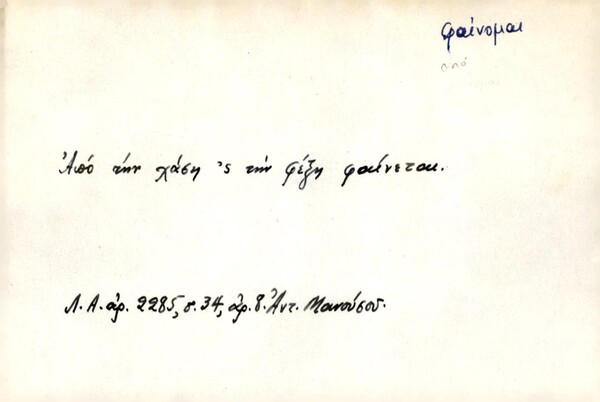 φαίνομαι
από
Ἀπό τήν χάση 'ς τήν φέξη φαίνεται.
Λ. Α. ἀρ. 2285, σ. 34, ἀρ. 8. Ἀντ. Μανούσου.